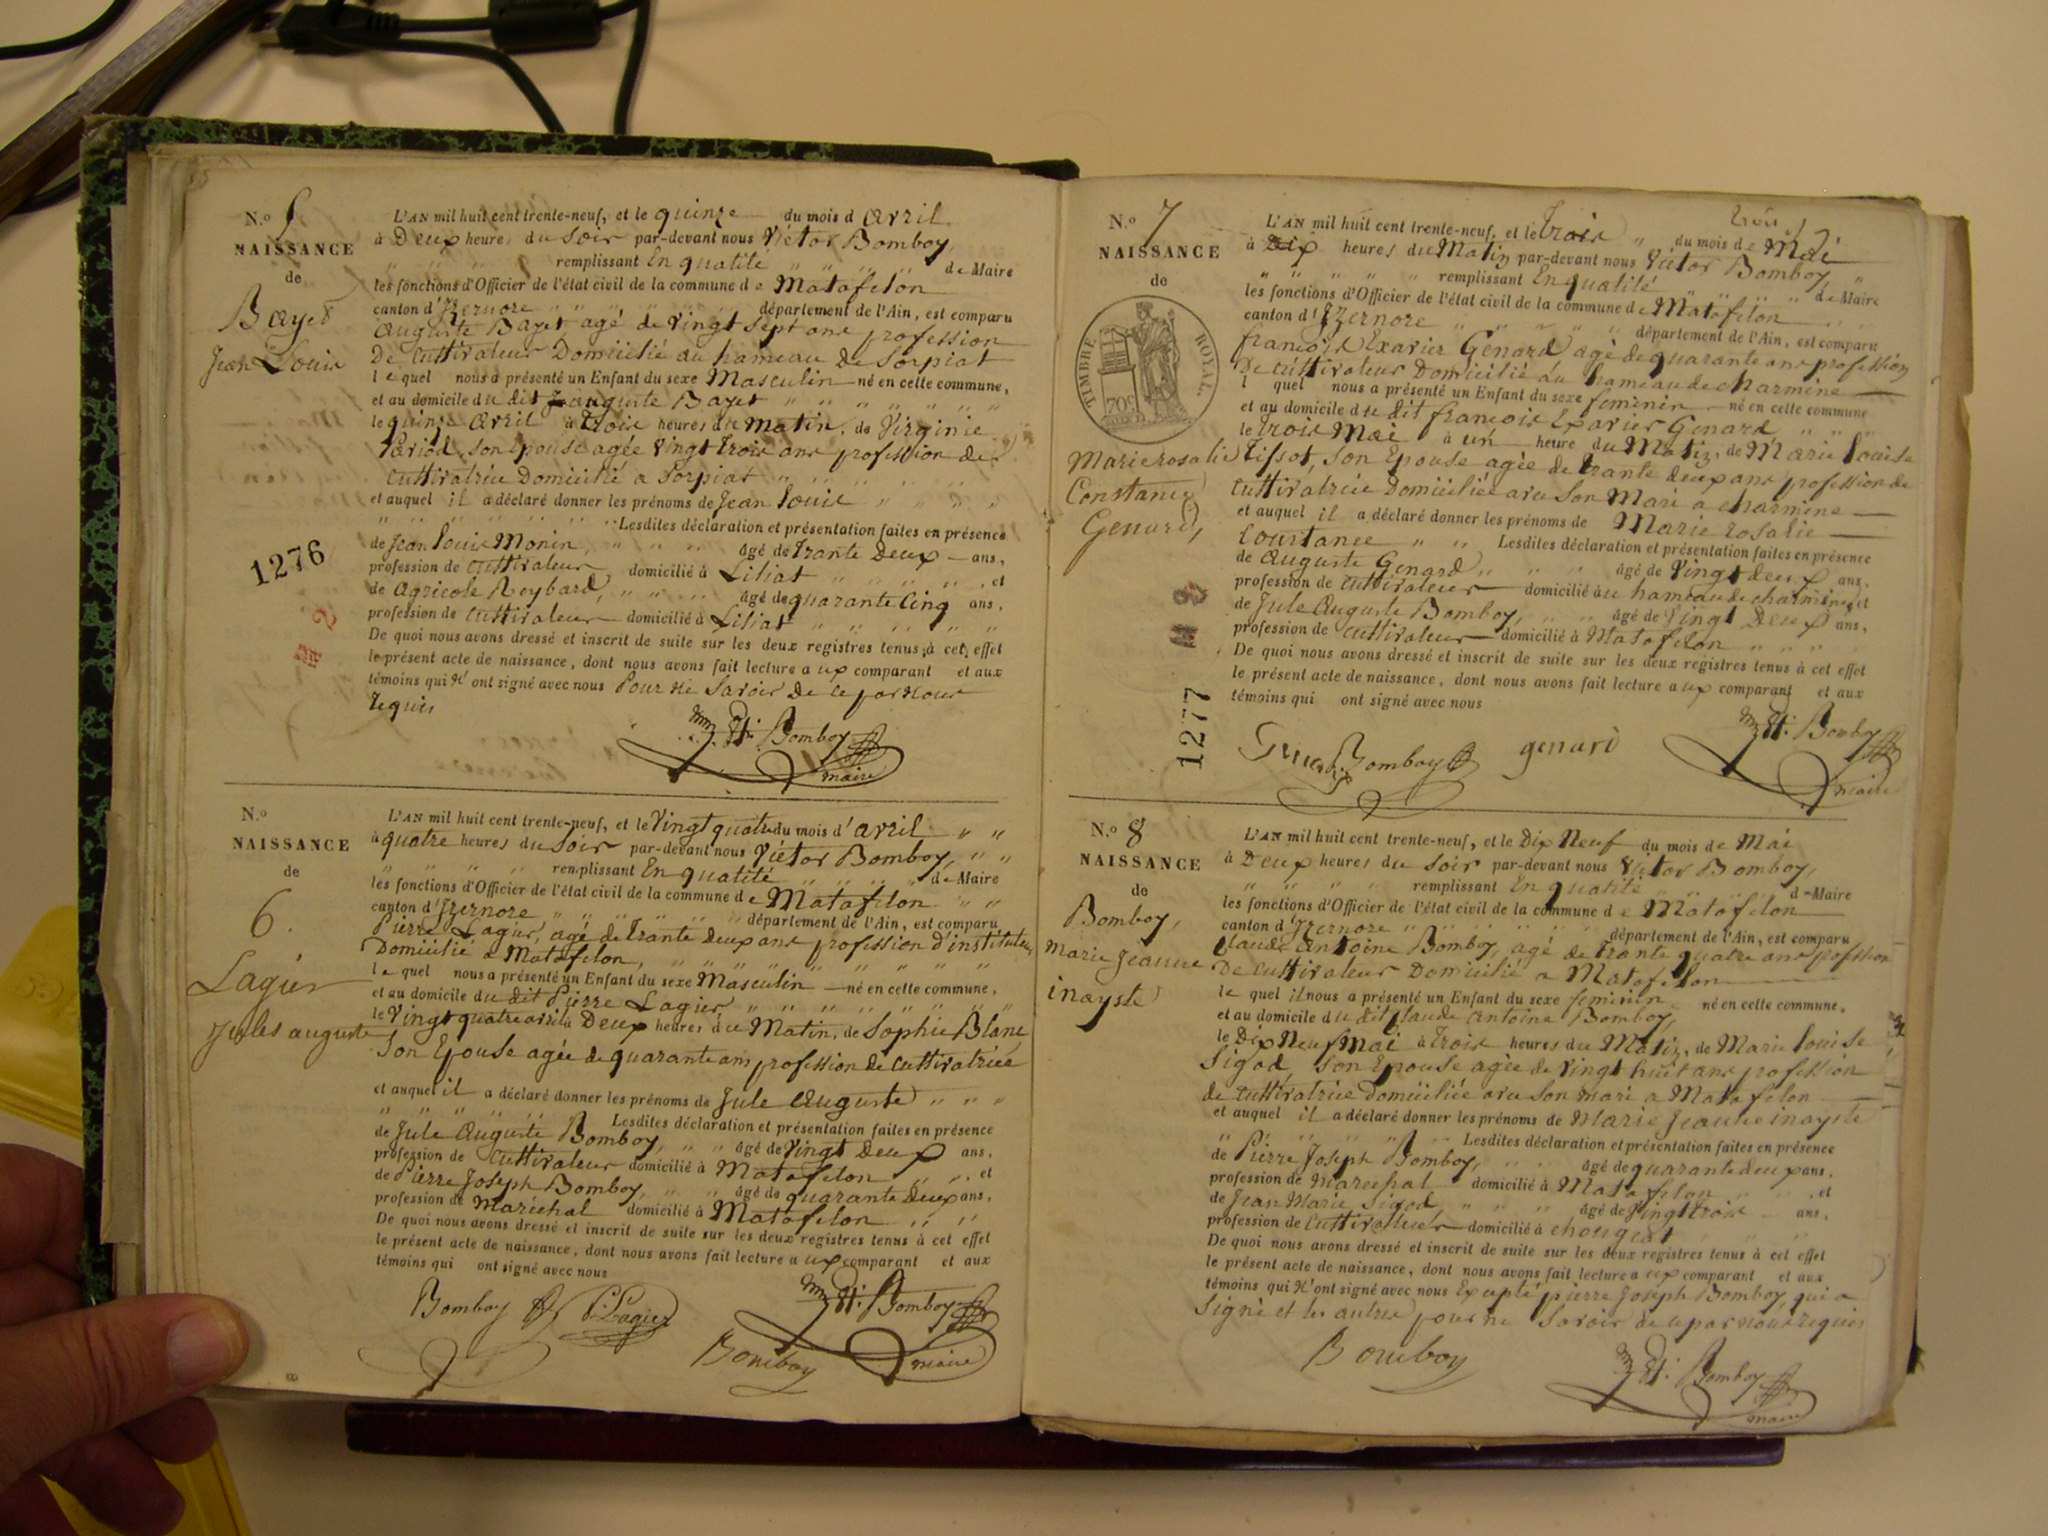 N.o 5
NAISSANCE
de
Bayet
Jean Louis
1276
L'AN mil huit cent trente-neuf, et le quinze du mois d avril
à Deux heures du Soir par-devant nous Victor Bomboy,
remplissant En qualité de Maire
les fonctions d'Officier de l'état civil de la commune de Matafelon
canton d'Izernore département de l'Ain, est comparu
auguste Bayet agé de vingt sept ans profession
De cultivateur Domicilié au hameau de Sorpiat
lequel nous a présenté un Enfant du sexe Masculin né en cette commune,
et au domicile du dit auguste Bayet
le quinze avril à trois heures du matin, de Virginie
Pariod, son Epouse agée vingt trois ans profession de
cultivatrice Domicilié a Sorpiat
et auquel il a déclaré donner les prénoms de Jean Louis
Lesdites déclaration et présentation faites en présence
de Jean Louis Monin âgé de trante Deux ans,
profession de cultivateur domicilié à Liliat et
de agricole Reybard, âgé de quarante Cinq ans,
profession de cultivateur domicilié à Liliat
De quoi nous avons dressé et inscrit de suite sur les deux registres tenus à cet effet
le présent acte de naissance, dont nous avons fait lecture aux comparant et aux
témoins qui n'ont signé avec nous Pour ne Savoir de ce par nous
requis
Bomboy
maire
N.o
NAISSANCE
de
6.
Lagier
Jules auguste
L'AN mil huit cent trente-neuf, et le Vingt quatre du mois d'avril
à quatre heures du Soir par-devant nous Victor Bomboy,
remplissant En qualité de Maire
les fonctions d'Officier de l'état civil de la commune de Matafelon
canton d'Izernore département de l'Ain, est comparu
Pierre Lagier, agé de trante deux ans profession d'instituteur
Domicilié a Matafelon,
lequel nous a présenté un Enfant du sexe Masculin né en cette commune,
et au domicile du dit Pierre Lagier,
le Vingt quatre avril à Deux heures du Matin, de Sophie Blanc
Son Epouse agée de quarante ans profession de cultivatrice
et auquel il a déclaré donner les prénoms de Jule Auguste
Lesdites déclaration et présentation faites en présence
de Jule Auguste Bomboy, âgé de Vingt Deux ans,
profession de cultivateur domicilié à Matafelon et
de Pierre Joseph Bomboy, âgé de quarante Deux ans,
profession de Maréchal domicilié à Matafelon
De quoi nous avons dressé et inscrit de suite sur les deux registres tenus à cet effet
le présent acte de naissance, dont nous avons fait lecture aux comparant et aux
témoins qui ont signé avec nous
Bomboy P. Lagier Bomboy
Bomboy maire
N.o 7
NAISSANCE
de
TIMBRE ROYAL
70c
Marie rosalie
Constance
Genard,
1277
L'AN mil huit cent trente-neuf, et le trois du mois de Mai
à Dix heures du Matin par-devant nous Victor Bomboy,
remplissant En qualité de Maire
les fonctions d'Officier de l'état civil de la commune de Matafelon
canton d'Izernore département de l'Ain, est comparu
françois Exavier Genard agé de quarante ans profession
De cultivateur Domicilié au hameau de charmine
l quel nous a présenté un Enfant du sexe feminin né en cette commune
et au domicile du dit françois Exavier Genard
le trois Mai à un heure du Matin, de Marie Louise
Tissot, Son Epouse agée de trante deux ans profession de
cultivatrice Domiciliée avec Son Mari a charmine
et auquel il a déclaré donner les prénoms de Marie rosalie
Constance Lesdites déclaration et présentation faites en présence
de Auguste Genard âgé de Vingt deux ans,
profession de cultivateur domicilié au hameau de charmine, et
de Jule Auguste Bomboy, âgé de Vingt Deux ans,
profession de cultivateur domicilié à Matafelon
De quoi nous avons dressé et inscrit de suite sur les deux registres tenus à cet effet
le présent acte de naissance, dont nous avons fait lecture aux comparant et aux
témoins qui ont signé avec nous
Bomboy genard Bomboy
maire
N.o 8
NAISSANCE
de
Bomboy,
Marie Jeanne
inayste
L'AN mil huit cent trente-neuf, et le Dix Neuf du mois de Mai
à Deux heures du Soir par-devant nous Victor Bomboy,
remplissant En qualité d Maire
les fonctions d'Officier de l'état civil de la commune de Matafelon
canton d'Izernore département de l'Ain, est comparu
Claude Antoine Bomboy, agé de trante quatre ans profession
De cultivateur Domicilié a Matafelon
le quel il nous a présenté un Enfant du sexe feminin né en cette commune,
et au domicile du dit Claude Antoine Bomboy,
le Dix Neuf Mai à trois heures du Matin, de Marie Louise
Sigod, Son Epouse agée de vingt huit ans profession
de cultivatrice Domiciliée avec son mari a Matafelon
et auquel il a déclaré donner les prénoms de Marie Jeanne inayste
Lesdites déclaration et présentation faites en présence
de Pierre Joseph Bomboy, âgé de quarante deux ans,
profession de Marechal domicilié à Matafelon et
de Jean Marie Sigod, âgé de Vingt trois ans,
profession de Cultivateur domicilié à chougeat
De quoi nous avons dressé et inscrit de suite sur les deux registres tenus à cet effet
le présent acte de naissance, dont nous avons fait lecture aux comparant et aux
témoins qui n'ont signé avec nous Excepté pierre Joseph Bomboy, qui a
Signé et les autres pour ne Savoir de ce par nous requis
Bomboy Bomboy
maire